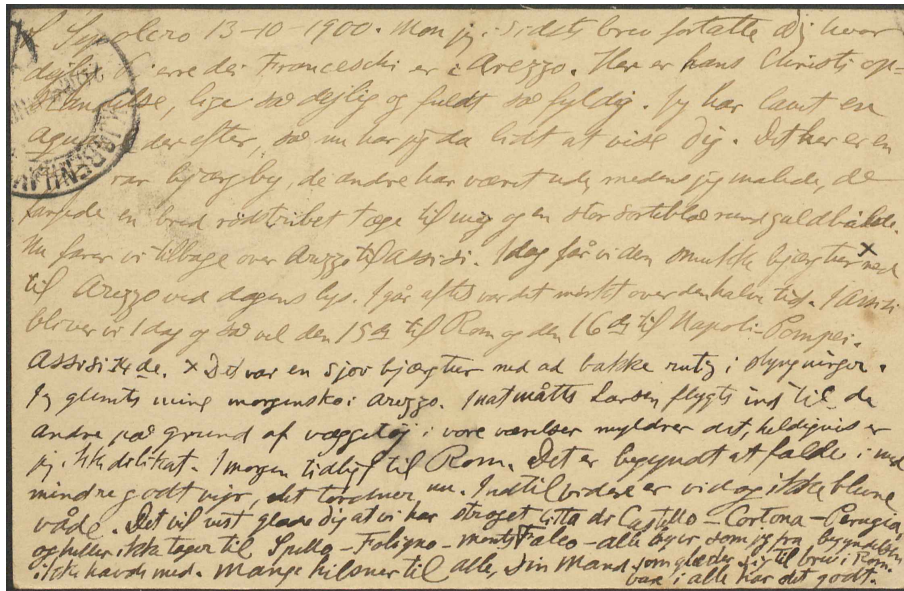 S. Sepolcro 13-10-1900. Mon jeg i sidste brev fortalte dig hvor
dejlig Pierre dei Franceschi er i Arezzo. Her er hans Christi op=
standelse, lige så dejlig og fuldt så fyldig. Jeg har lavet en
derefter, så nu har jeg da lidt at vise dig. Det her er en
rar bjærgby, de andre har været ude, medens jeg malede, de
en bred rödstribet tæge til mig og en stor sorteblå rand
Nu farer vi tilbage over Arezzo til Assisi. I dag får vi den smukke bjærgtur × ned
til Arezzo ved dagens lys. I går aftes var det mörkt over den halve tid. I Assisi
bliver vi 1 dag og så vel den 15de til Rom og den 16de til Napoli-Pompei.
Assisi 14de. × Det var en sjov bjærgtur ned ad bakke rutz i slyngninger.
Jeg glemte mine morgensko i Arezzo. I nat måtte Larsen flygte ind til de
andre på grund af væggetöj i vore værelser myldrer det, heldigvis er
jeg ikke delikat. I morgen tidlig til Rom. Det er begyndt at falde i med
mindre godt vejr, det tordner nu. Indtil videre er vi dog ikke blevne
våde. Det vil vist glæde dig at vi har ströget Citta di Castello - Cortona - Perugia,
og heller ikke tager til Spello - Foligno - Monte Falco - alle byer som jeg fra begyndelsen
ikke havde med. Mange hilsner til alle, din Mand som glæder sig til brev i Rom.
bare i alle har det godt.